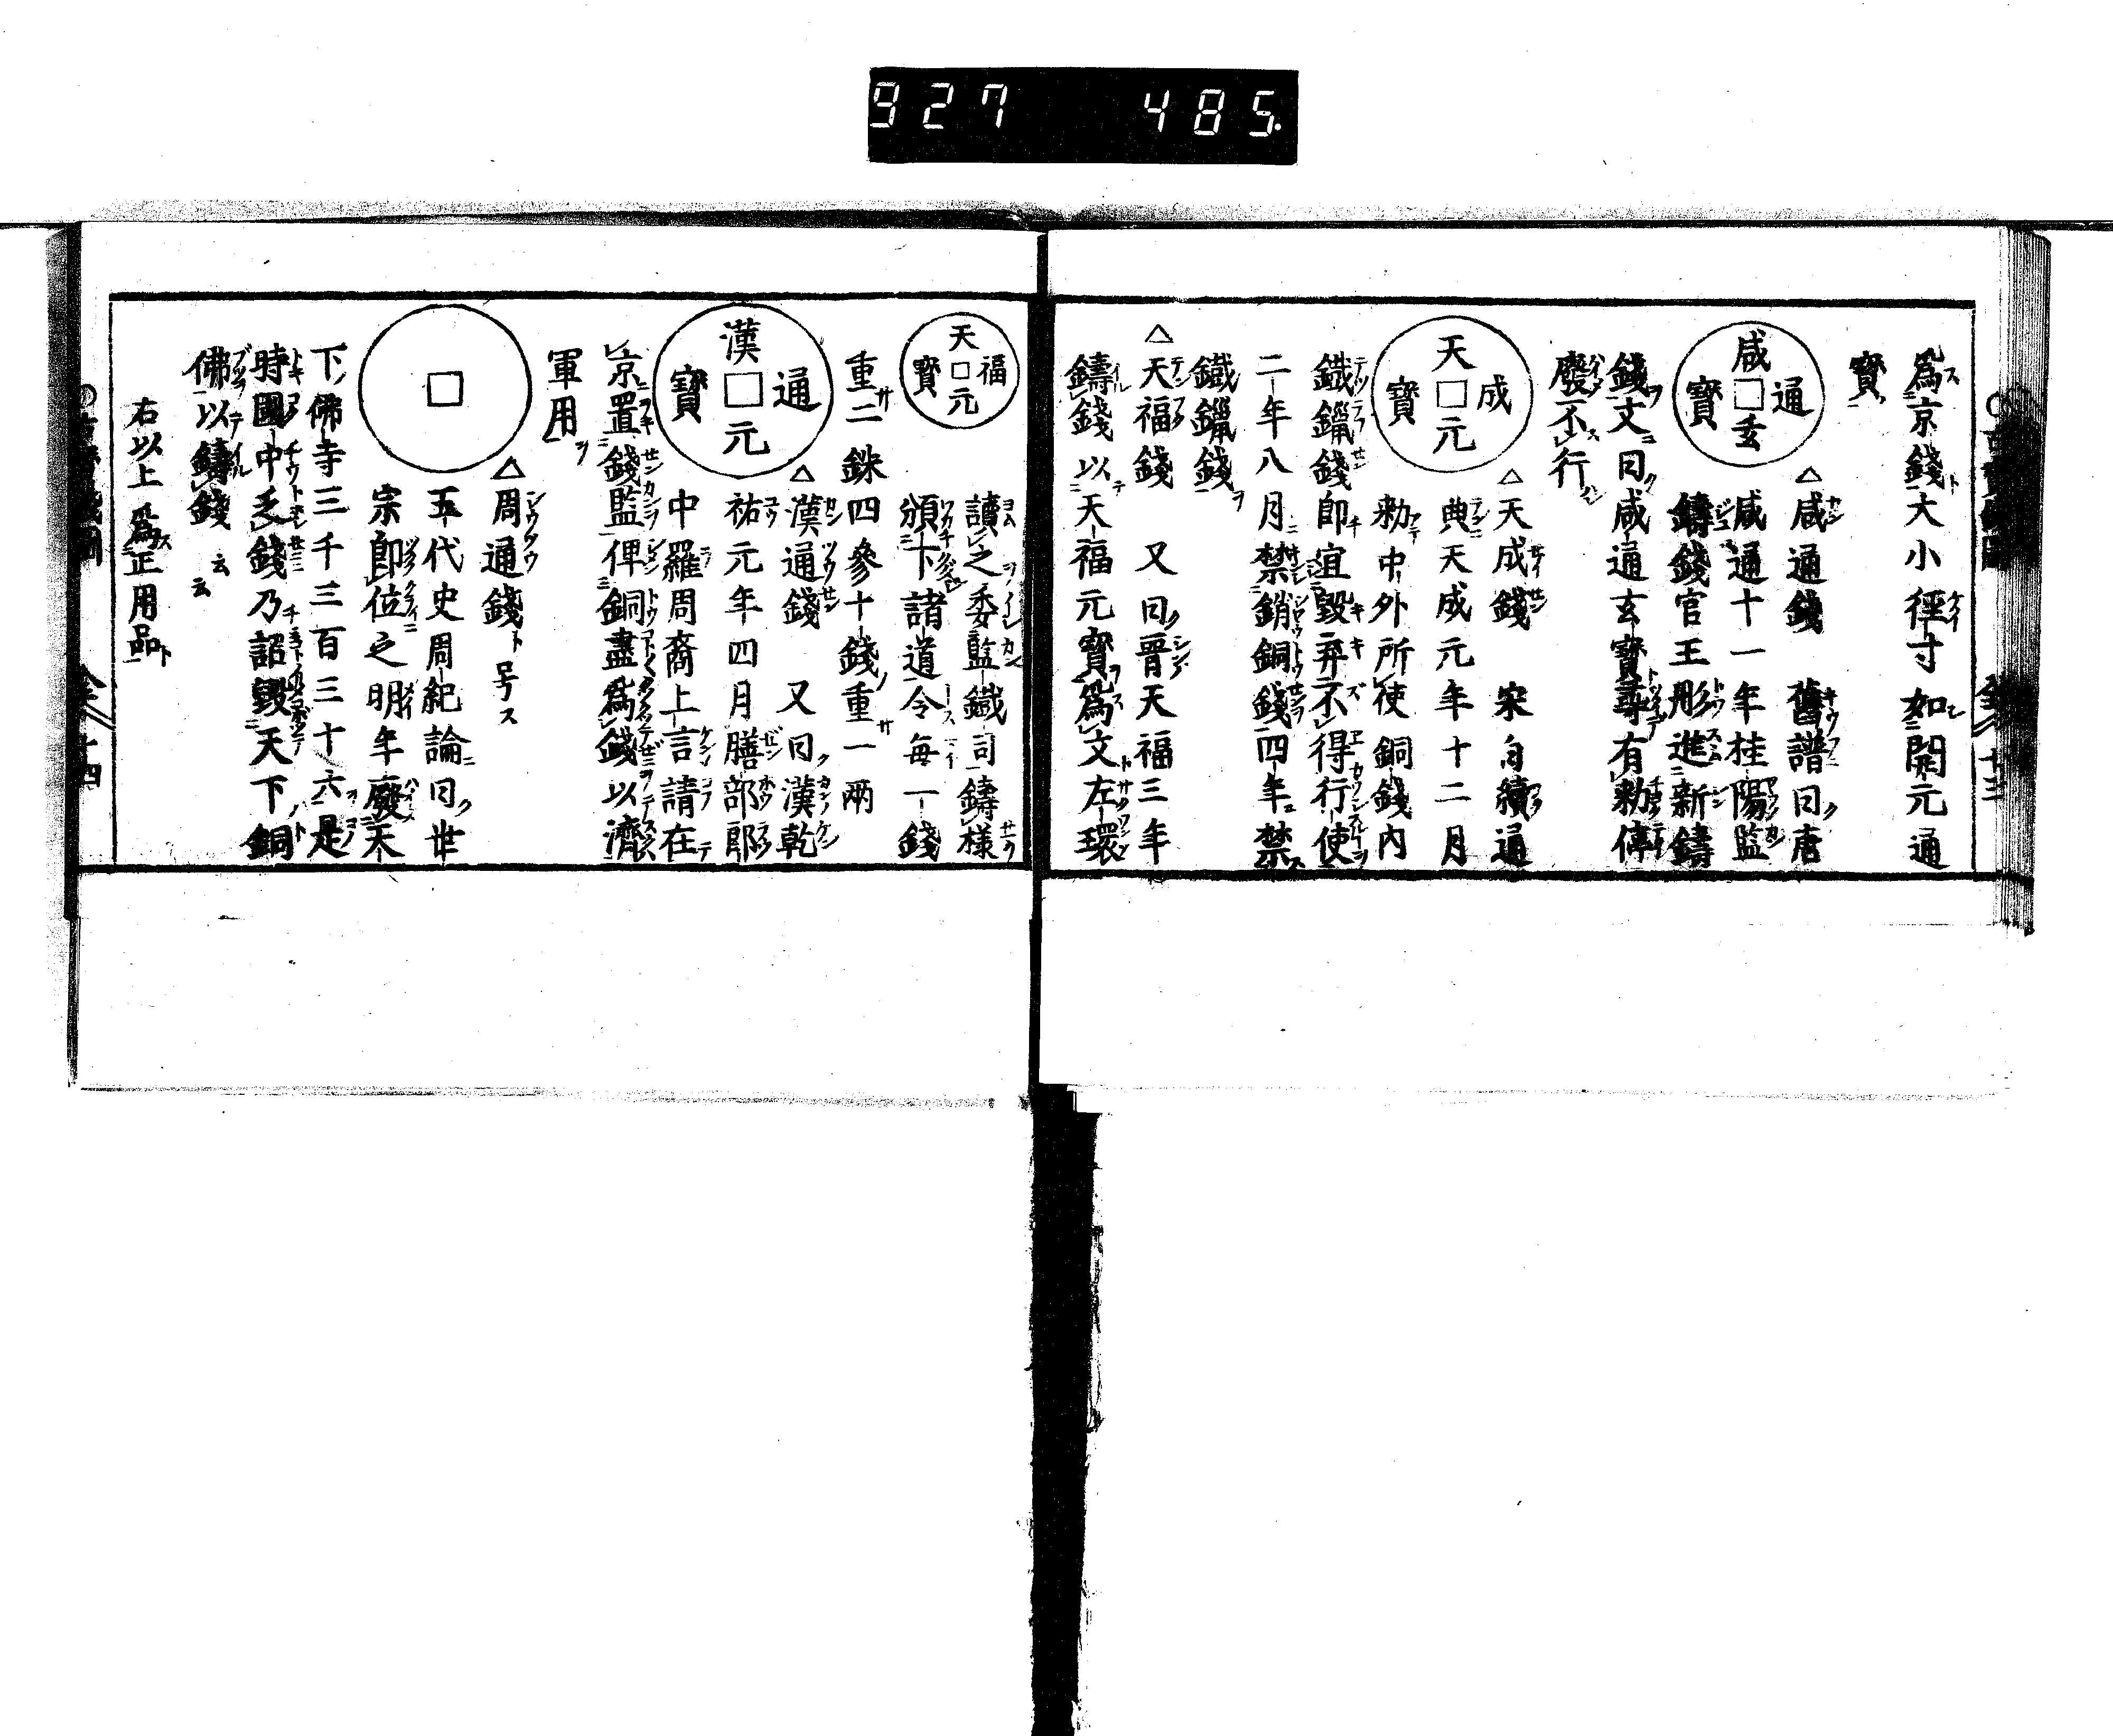 927 485.
爲京錢大小徑寸如開元通
寶
咸通玄寶
△咸通錢 舊譜曰唐
咸通十一年桂陽監
鑄錢官王彤進新鑄
錢文曰咸通玄寶尋有勅停
廢不行
天成元寶
△天成錢 宋白續通
典天成元年十二月
勅中外所使銅錢内
鐵鑞錢卽宜毀弃不得行使
二年八月禁銷銅錢四年禁
鐵鑞錢
△天福錢 又曰晋天福三年
鑄錢以天福元寶爲文左環
天福元寶
讀之委監鐵司鑄樣
頒下諸道令每一錢
重二銖四參十錢重一兩
漢通元寶
△漢通錢 又曰漢乾
祐元年四月膳部郎
中羅周裔上言請在
京置錢監俾銅盡爲錢以濟
軍用
△周通錢ト号ス
五代史周紀論曰世
宗卽位之明年廢天
下佛寺三千三百三十六是
時國中乏錢乃詔毀天下銅
佛以鑄錢云云
右以上爲正用品